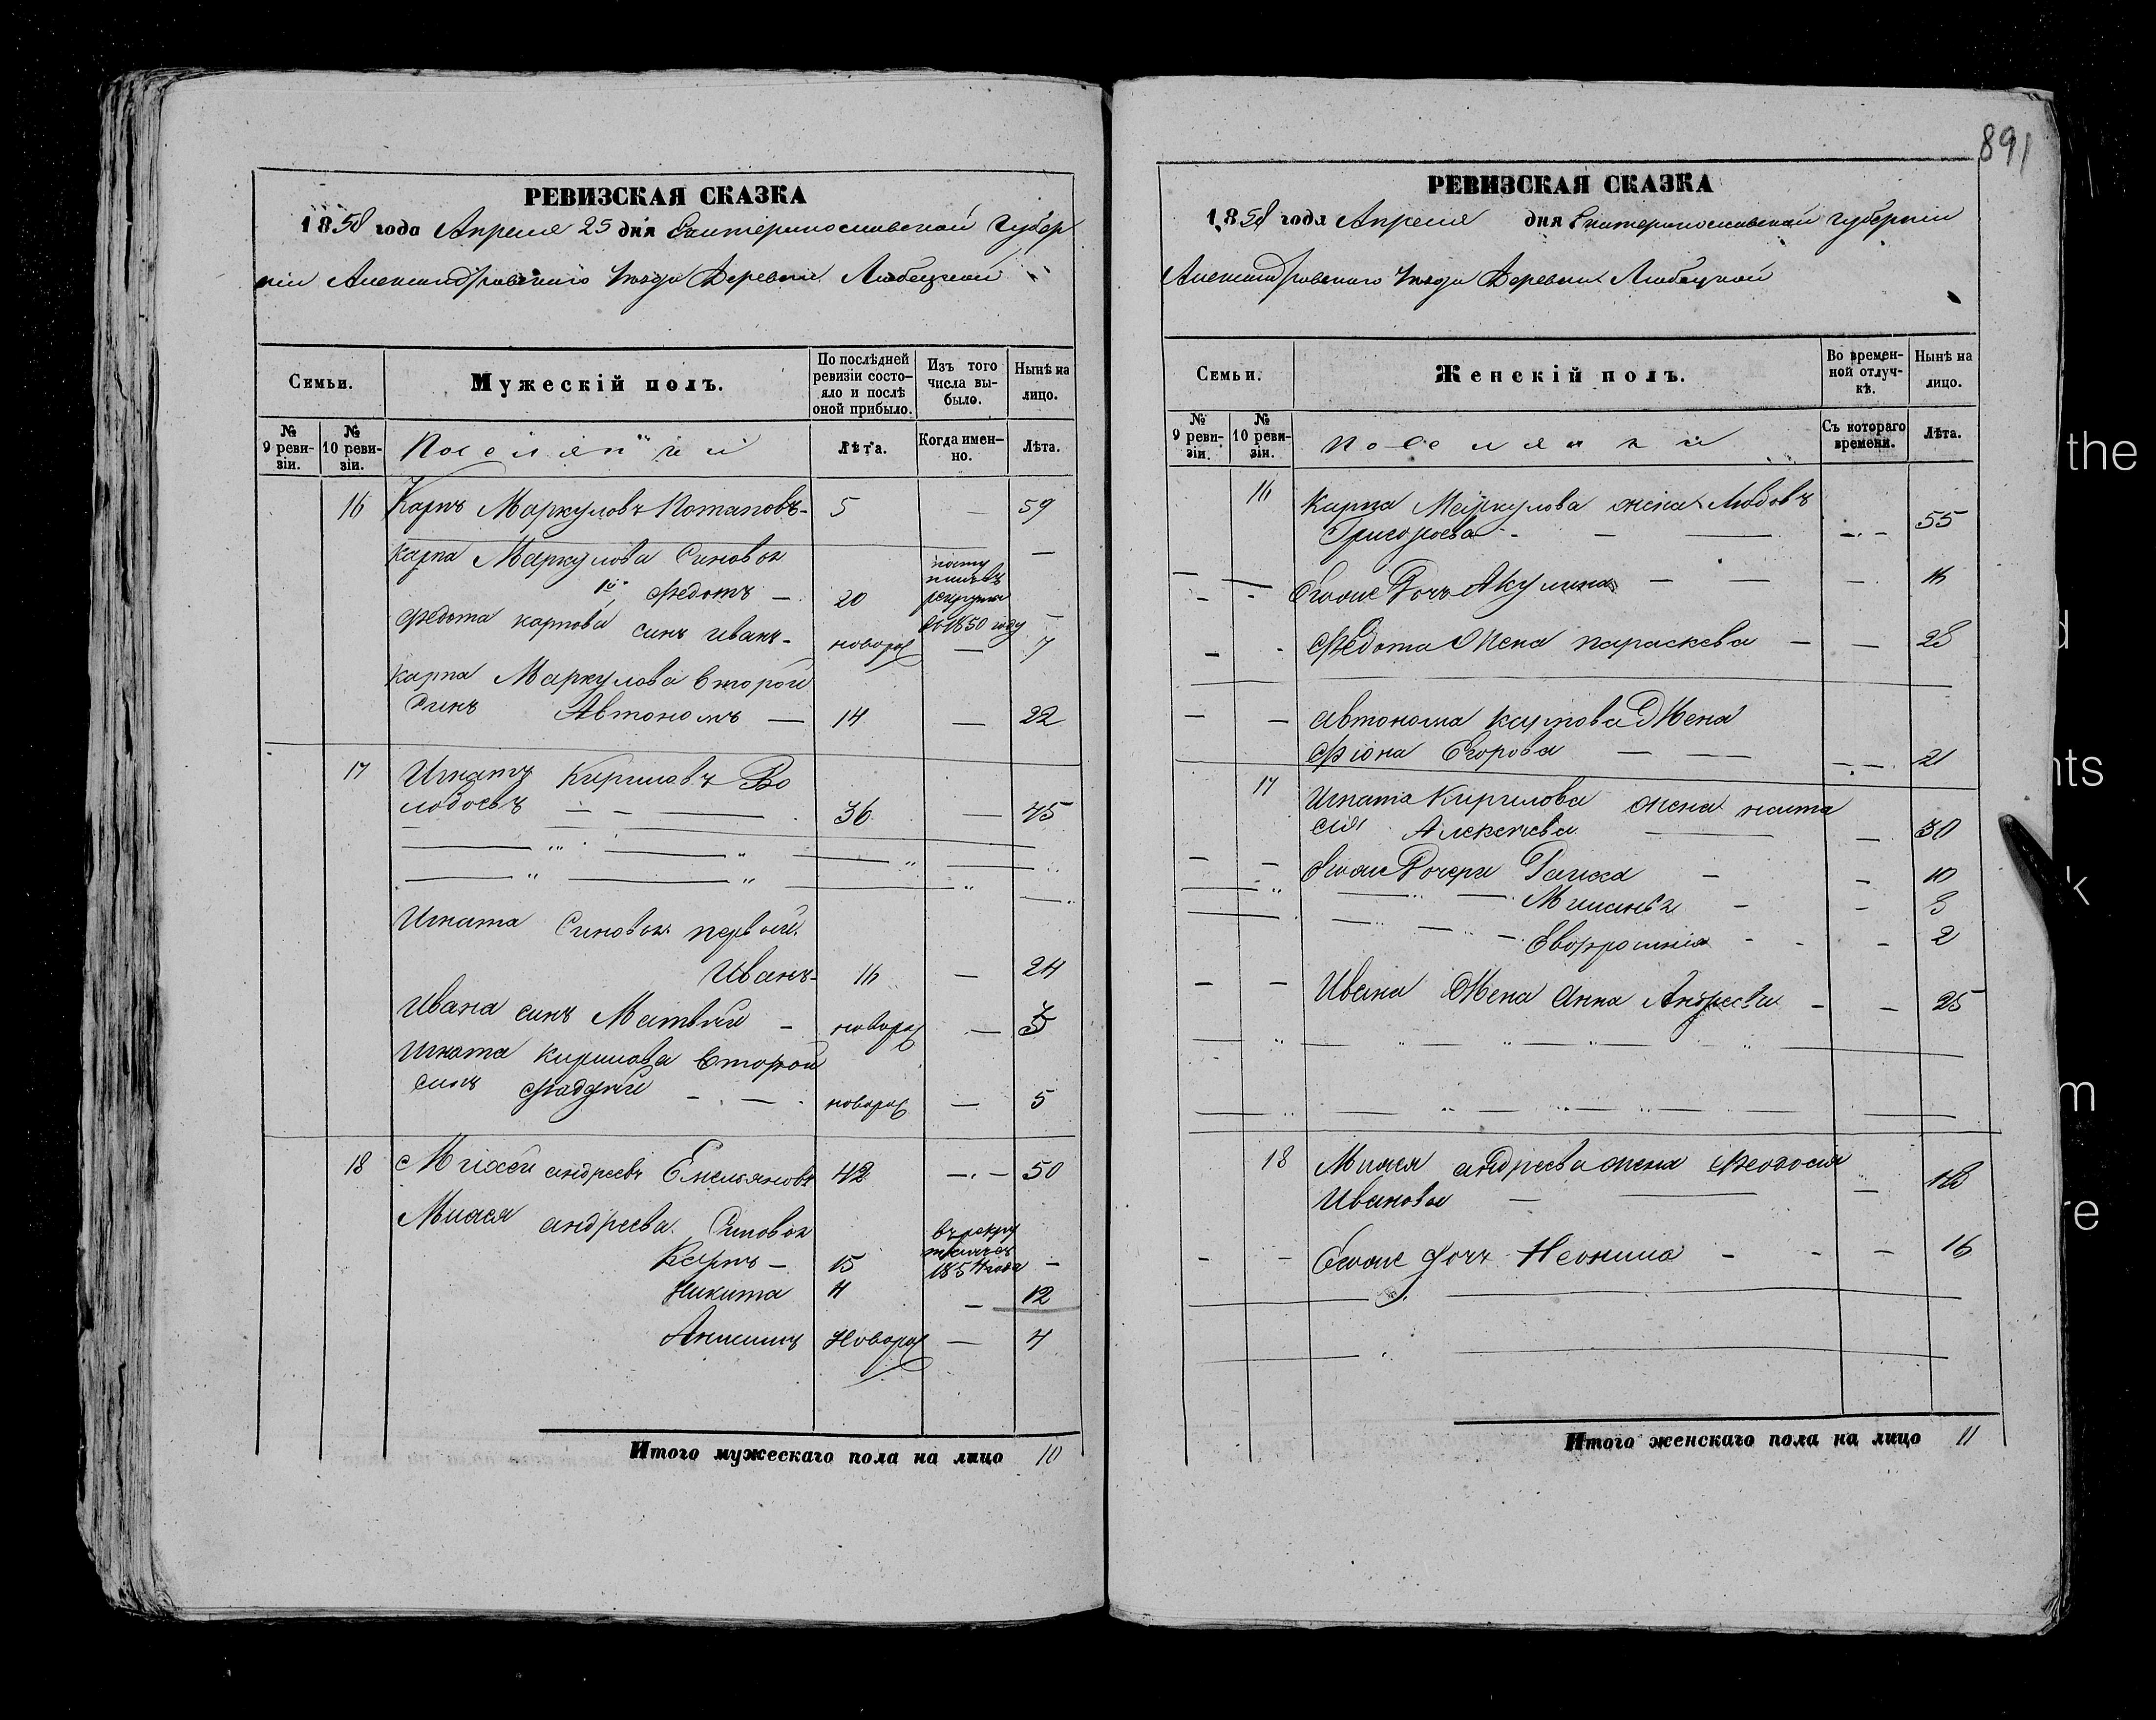 891
РЕВИЗСКАЯ СКАЗКА
1858 года Апреля 25 дня Екатеринославской Губер
нiи Александровского Уезда Деревни Любецкой
Семьи.
Мужескiй полъ.
По послѣдней ревизiи состо-
яло и послѣ
оной прибыло.
Изъ того
числа вы-
было.
Нынѣ на
лицо.
№
9 реви-
зiи.
№
10 реви-
зiи.
Поселяни
Лѣта.
Когда имен-
но.
Лѣта.
16 Карпъ Маркуловъ Потаповъ - 5 — 59
Карпа Маркулова Синовья —
1й Федотъ — 20
рекруты
в 1850 году —
Федота карпова синъ иванъ - новорож — 7
карпа Маркулова второй
Синъ Автономъ — 14 — 22
17 Игнатъ Кирилавъ Во
лобоевъ — 36 — 45
Игната Синовья первый
Иванъ - 16 — 24
Ивана синъ Матвѣй - новорож — 3
Игната кирилова Второй
синъ Фадѣй - новорож — 5
18 Михей андреевъ Емельяновъ 42 — 50
Михея андреева Синовья
Карпъ — 15
въ рекру
1854 года —
Никита 4 — 12
Анисимъ Новорож — 4
Итого мужескаго пола на лицо 10
РЕВИЗСКАЯ СКАЗКА
1858 года Апреля дня Екатеринославской губернiи
Александровского Уезда Деревни Любецкой
Семьи.
Женскiй полъ.
Во времен-
ной отлуч-
кѣ.
Нынѣ на
лицо.
№
9 реви-
зiи.
№
10 реви-
зiи.
Поселянки
Съ котораго
времени.
Лѣта.
16 Карпа Маркулова жена Любовъ
Григорьева - — 55
Егоже Дочъ Акулина — — 16
Федота Жена параскева — — 28
автонома карпова Жена
Фiона Егорова — — 21
17 Игната Кирилова жена наста
сiя Алексѣева — 30
Егоже Дочери — 10
— 3
Евфросинiя - — 2
Ивана Жена Анна Андреева - — 25
18 Михея андреева жена Феодосия
Иванова — — 48
Егоже дочъ Неонила - — 16
Итого женскаго пола на лицо 11
the
d
nts
k
m
re